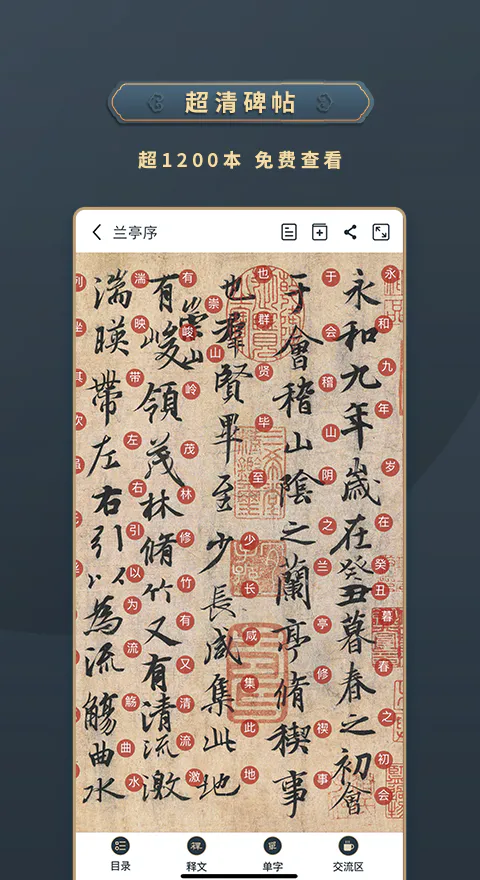 超清碑帖
超1200本 免费查看
兰亭序
永和九年歲在癸丑暮春之初會
永和九年岁在癸丑暮春之初会
于會稽山陰之蘭亭脩稧事
于会稽山阴之兰亭修禊事
也羣賢畢至少長咸集此地
也群贤毕至少长咸集此地
有崇山峻領茂林脩竹又有清流激
有崇山峻岭茂林修竹有又清流激
湍暎帶左右引以為流觴曲水
湍映带左右引以为流觞曲水
目录
释文
单字
交流区